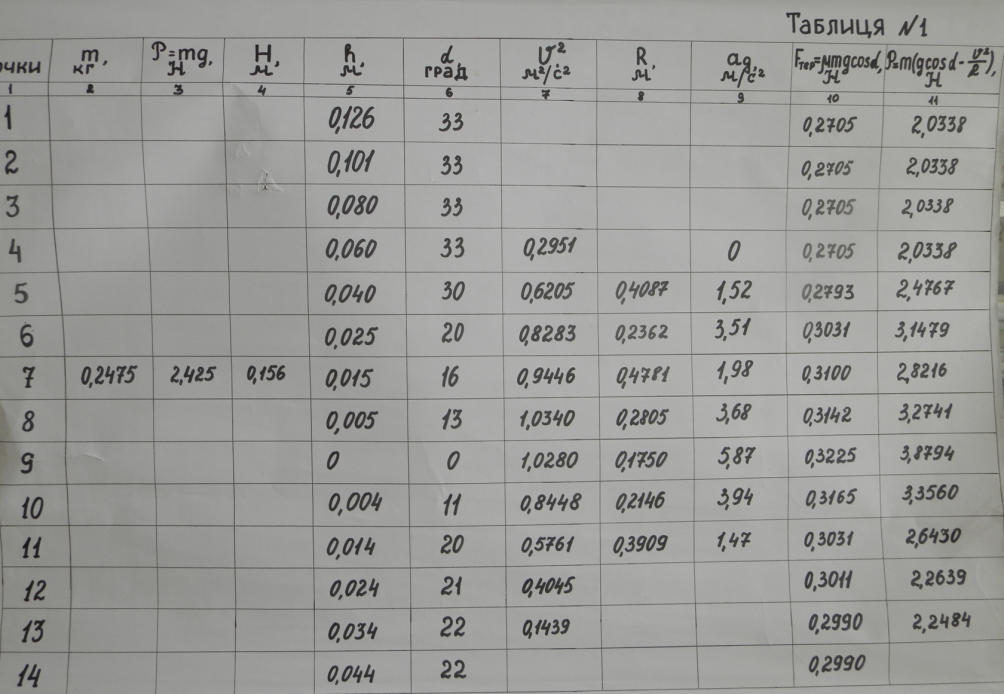 Таблиця №1
очки m, кг P=mg, Н H, м h, м α град υ² м²/с² R, м aд м/с² Fтер=μmgcosα, Н P=m(gcosα - υ²/R), Н
1 2 3 4 5 6 7 8 9 10 11
1 0,126 33 0,2705 2,0338
2 0,101 33 0,2705 2,0338
3 0,080 33 0,2705 2,0338
4 0,060 33 0,2951 0 0,2705 2,0338
5 0,040 30 0,6205 0,4087 1,52 0,2793 2,4767
6 0,025 20 0,8283 0,2362 3,51 0,3031 3,1479
7 0,2475 2,425 0,156 0,015 16 0,9446 0,4781 1,98 0,3100 2,8216
8 0,005 13 1,0340 0,2805 3,68 0,3142 3,2741
9 0 0 1,0280 0,1750 5,87 0,3225 3,8794
10 0,004 11 0,8448 0,2146 3,94 0,3165 3,3560
11 0,014 20 0,5761 0,3909 1,47 0,3031 2,6430
12 0,024 21 0,4045 0,3011 2,2639
13 0,034 22 0,1439 0,2990 2,2484
14 0,044 22 0,2990